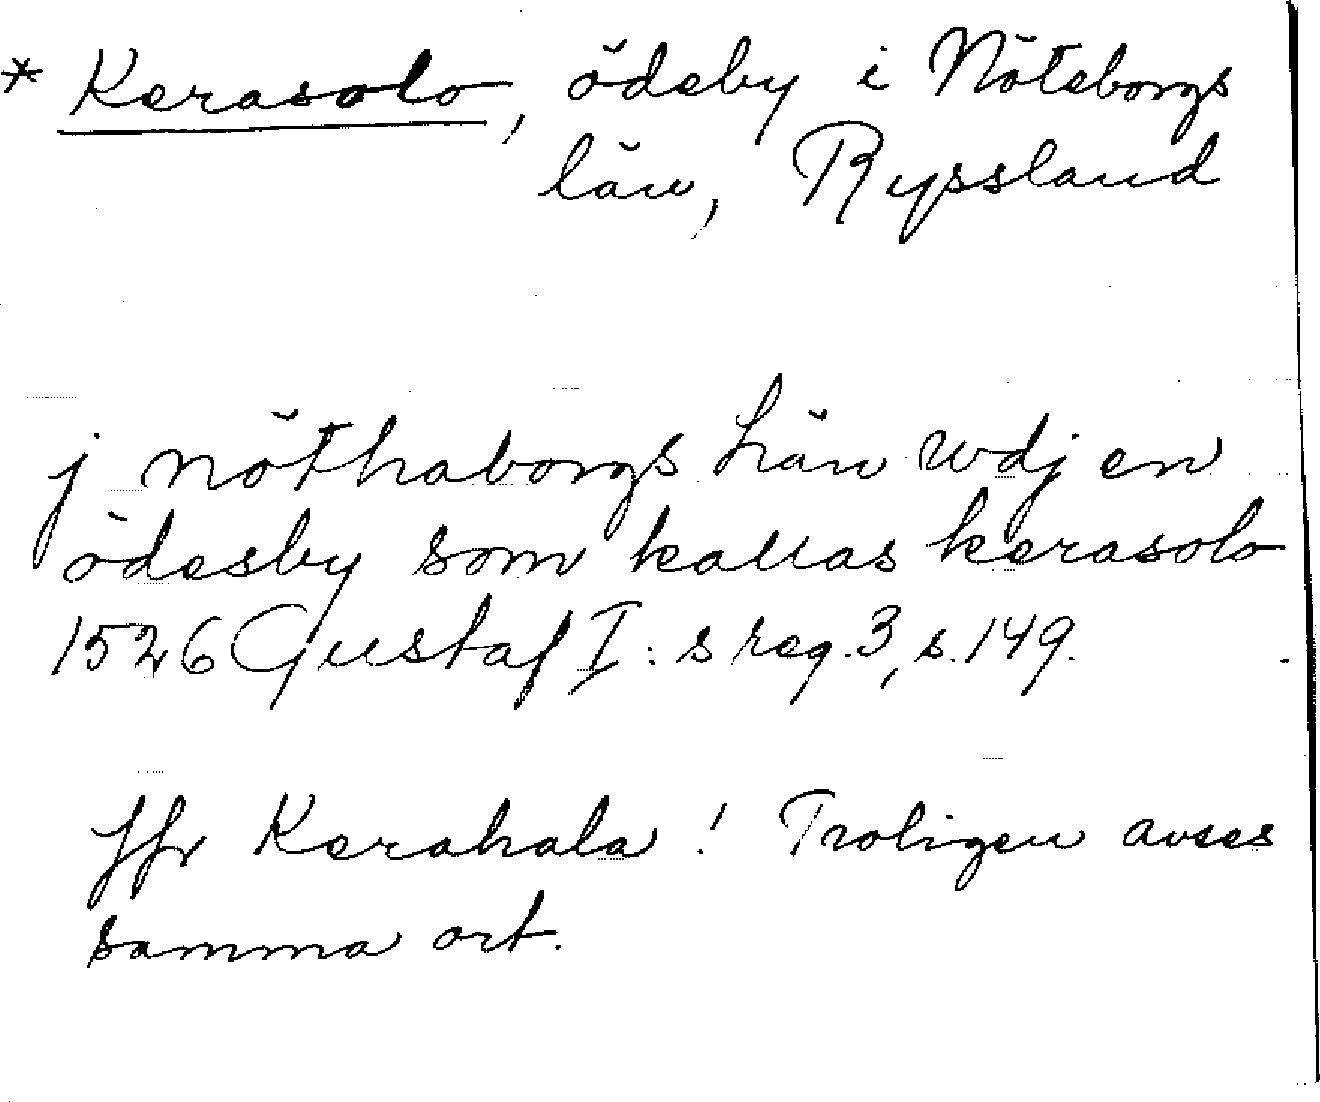 * Kerasolo, ödeby i Nöteborgs
län, Ryssland
j nöthaborgs Län wdj en
ödesby som kallas kerasolo
1526 Gustaf I:s reg. 3, s. 149.
Jfr Kerahala! Troligen avses
samma ort.